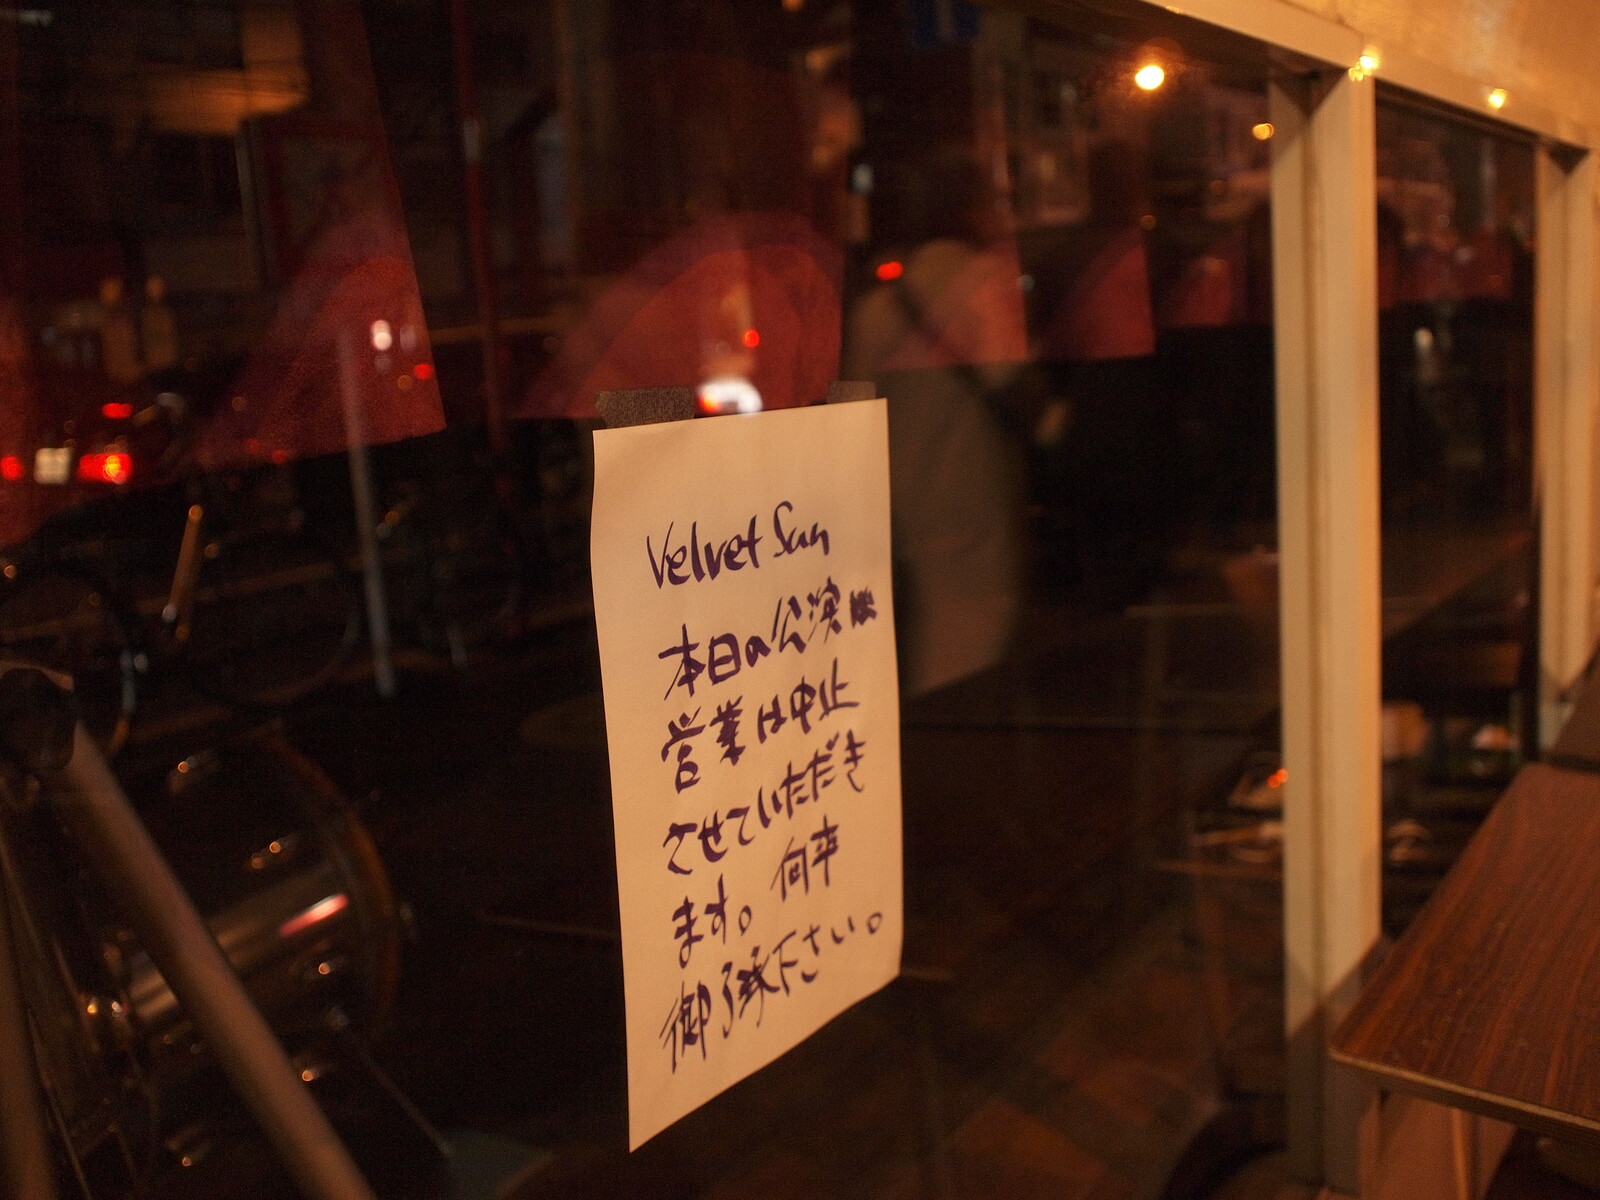 Velvet Sun
本日の公演
営業は中止
させていただき
ます。何卒
御了承下さい。